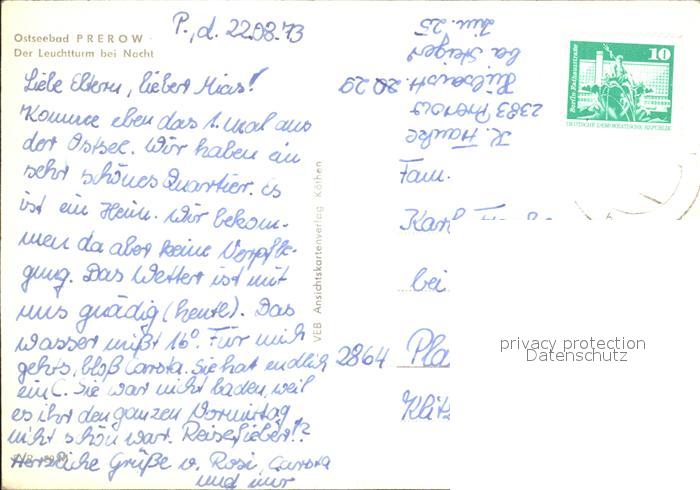 Ostseebad PREROW
Der Leuchtturm bei Nacht
P., d. 22.08.73
Liebe Eltern, lieber
Komme eben das 1. mal aus
der Ostsee. Wir haben ein
sehr schönes Quartier. Es
ist ein Heim. Wir bekom-
men da aber keine Verpfle-
gung. Das Wetter ist mit
uns gnädig (heute). Das
Wasser mißt 16°. Für mich
gehts, bloß Carsta. Sie hat endlich
ein C. Sie war nicht baden, weil
es ihr den ganzen Vormittag
nicht schön war. Reisefieber!?
Herzliche Grüße v. Rosi, Carsta
und mir
VEB Ansichtskartenverlag Köthen
K. Hauke
2383 Prerow
bei
Zim. 25
10
Berlin, Rathausstraße
DEUTSCHE DEMOKRATISCHE REPUBLIK
Fam.
bei
2864 Pla
Klitz
privacy protection
Datenschutz